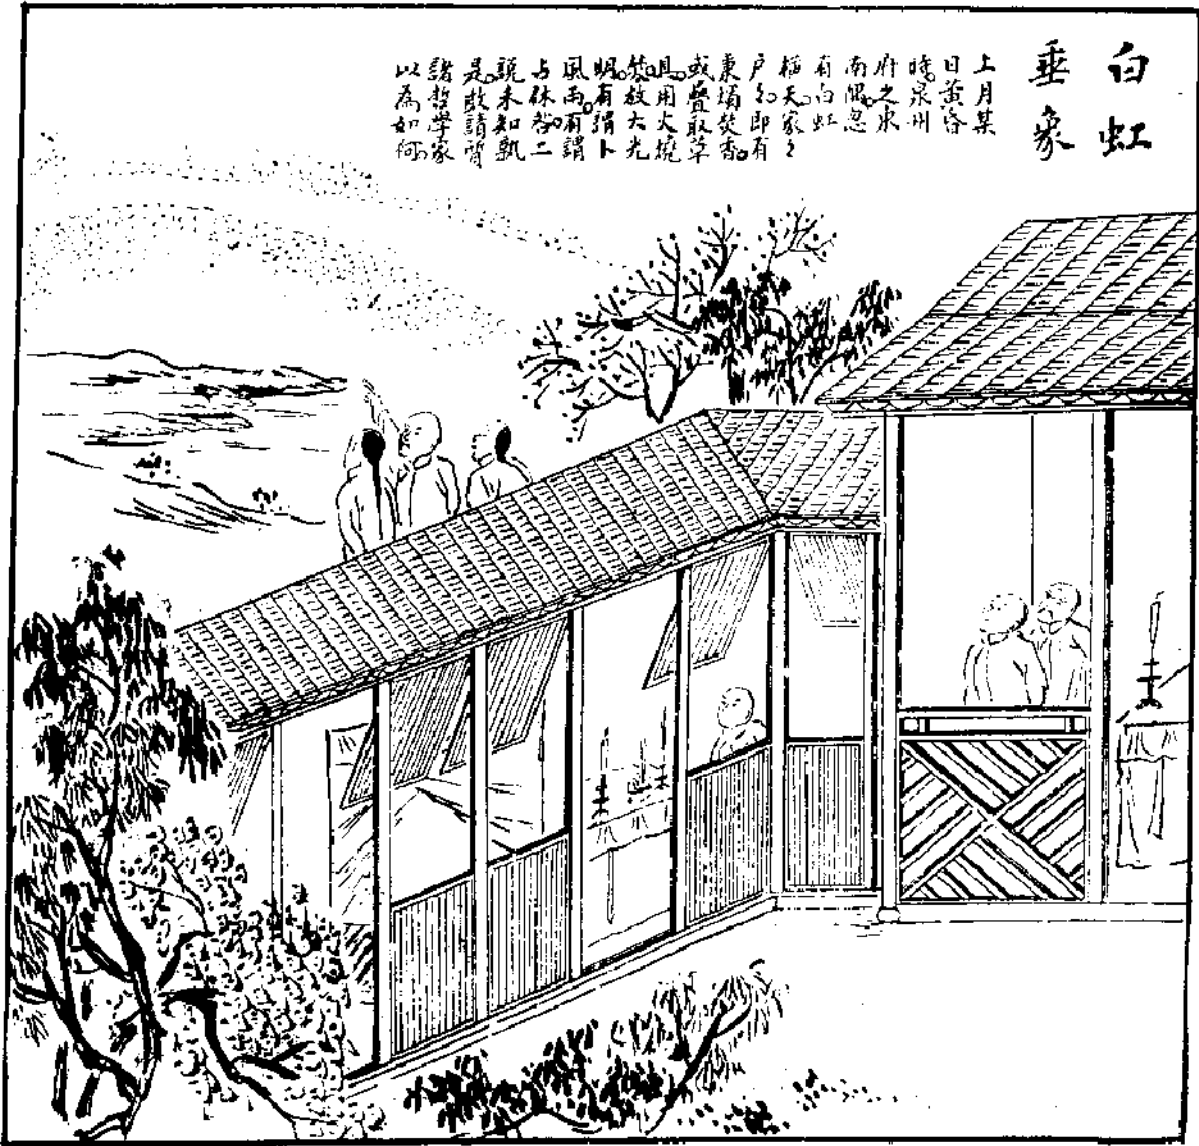 白虹
垂象
上月某
日黃昏
時。泉州
府之東
南隅。忽
有白虹
橫天。家々
戶々。即有
東堝焚香。
或疊取草
具。用火燒
焚。放大光
明。有謂卜
風雨。有謂
占休咎。二
說未知孰
是。敢請質
諸哲學家
以為如何。